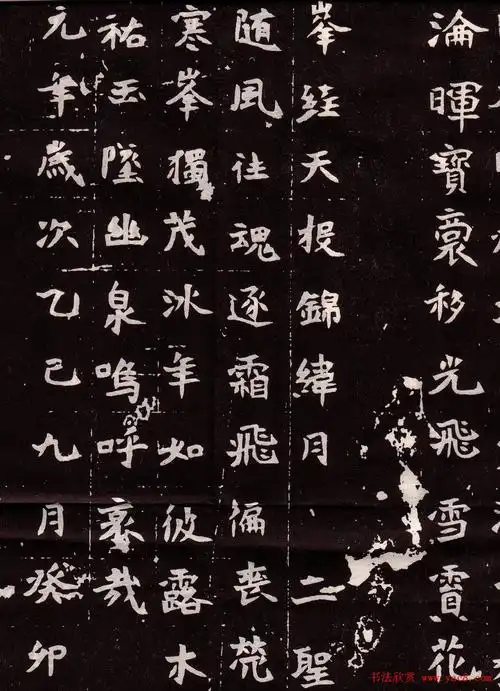 淪暉寶移光飛雪霣花
峯絓天投錦緯月二聖
随風往魂逐霜飛偏丧茕
寒峯獨茂氷年如彼露木
祐玉墜幽泉嗚呼哀哉
元年歳次乙巳九月癸卯
书法欣赏 www.yac8.com